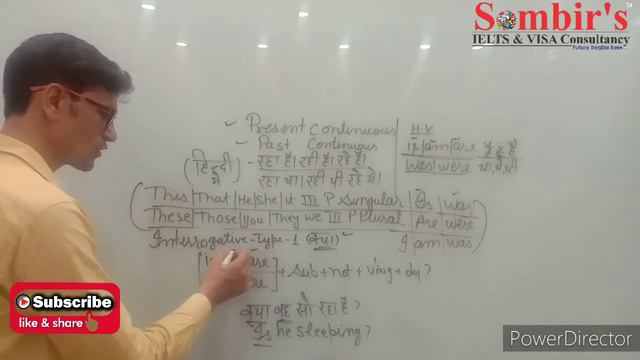 Sombir's
IELTS & VISA Consultancy
Future Begins Here...
Present Continuous
Past Continuous
(हिन्दी में) - रहा है। रही है। रहे है।
रहा था। रही थी रहे थे।
H.V
is|am|are है हूँ हैं
was|were था, थे, थी
This|That|He|She|it III P Singular|Is|was
These|Those|You|They we III Plural|Are|were
Interrogative-Type-1 (क्या) I|am|was
+ sub + not + ving + obj?
क्या वह सो रहा है?
Is he sleeping?
Subscribe
like & share
PowerDirector